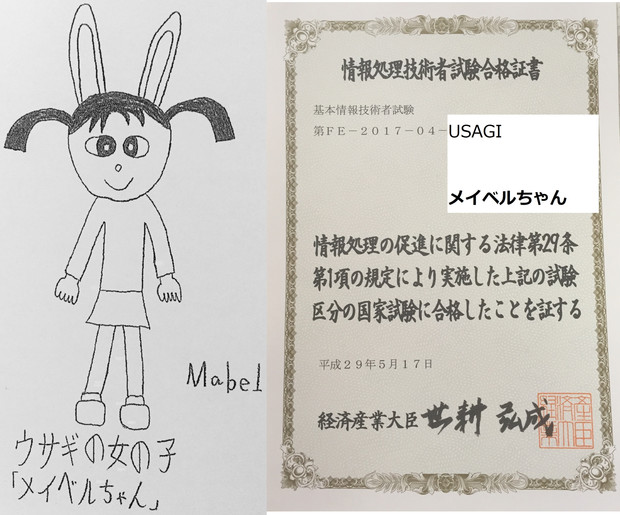 Mabel
ウサギの女の子
「メイベルちゃん」
情報処理技術者試験合格証書
基本情報技術者試験
第FE－2017－04－USAGI
メイベルちゃん
情報処理の促進に関する法律第29条
第1項の規定により実施した上記の試験
区分の国家試験に合格したことを証する
平成29年5月17日
経済産業大臣 世耕弘成